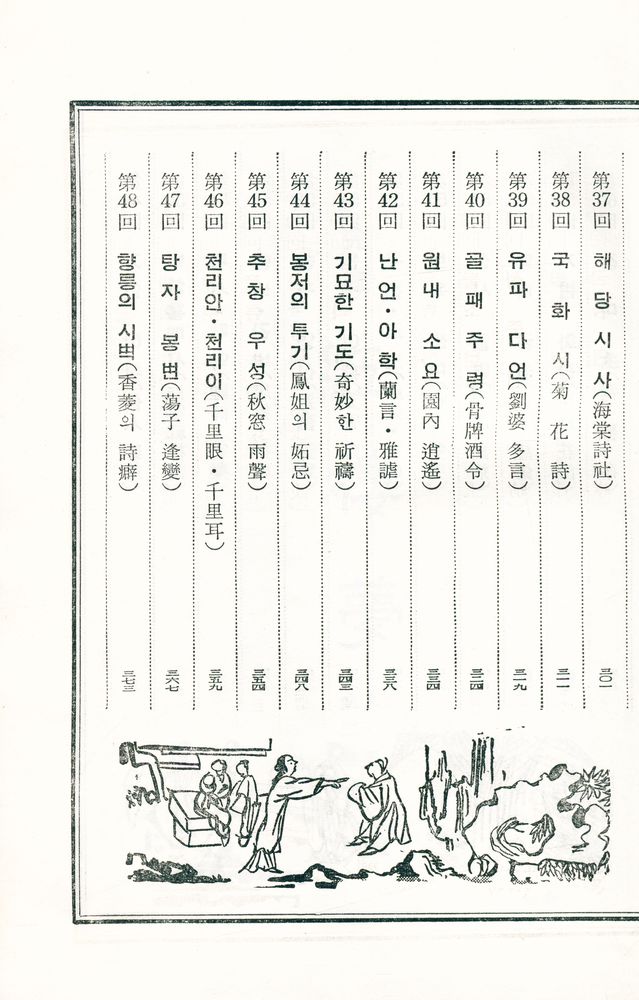 第37回 해당시사(海棠詩社) 三〇一
第38回 국화시(菊花詩) 三一一
第39回 유파 다언(劉婆 多言) 三一九
第40回 골패주령(骨牌酒令) 三二四
第41回 원내 소요(園內 逍遙) 三三四
第42回 난언·아학(蘭言·雅謔) 三三八
第43回 기묘한 기도(奇妙한 祈禱) 三四三
第44回 봉저의 투기(鳳姐의 妬忌) 三四八
第45回 추창 우성(秋窓 雨聲) 三五四
第46回 천리안·천리이(千里眼·千里耳) 三五九
第47回 탕자 봉변(蕩子 逢變) 三六七
第48回 향릉의 시벽(香菱의 詩癖) 三七三